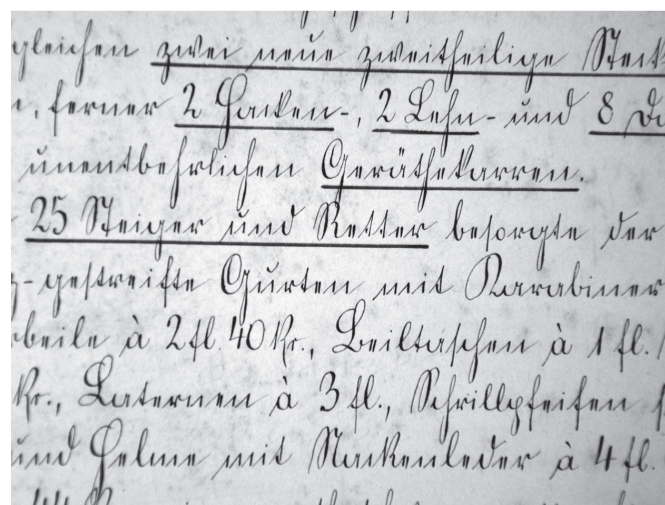 gleichen zwei neue zweitheilige Steck
ferner 2 Hacken-, 2 Lehn- und 8 Da
unentbehrlichen Geräthekarren.
25 Steiger und Retter besorgte der
-gestreifte Gurten mit Karabiner
beile à 2 fl. 40 kr., Beiltaschen à 1 fl.
kr., Laternen à 3 fl., Schrillpfeifen
und Helme mit Nackenleder à 4 fl.